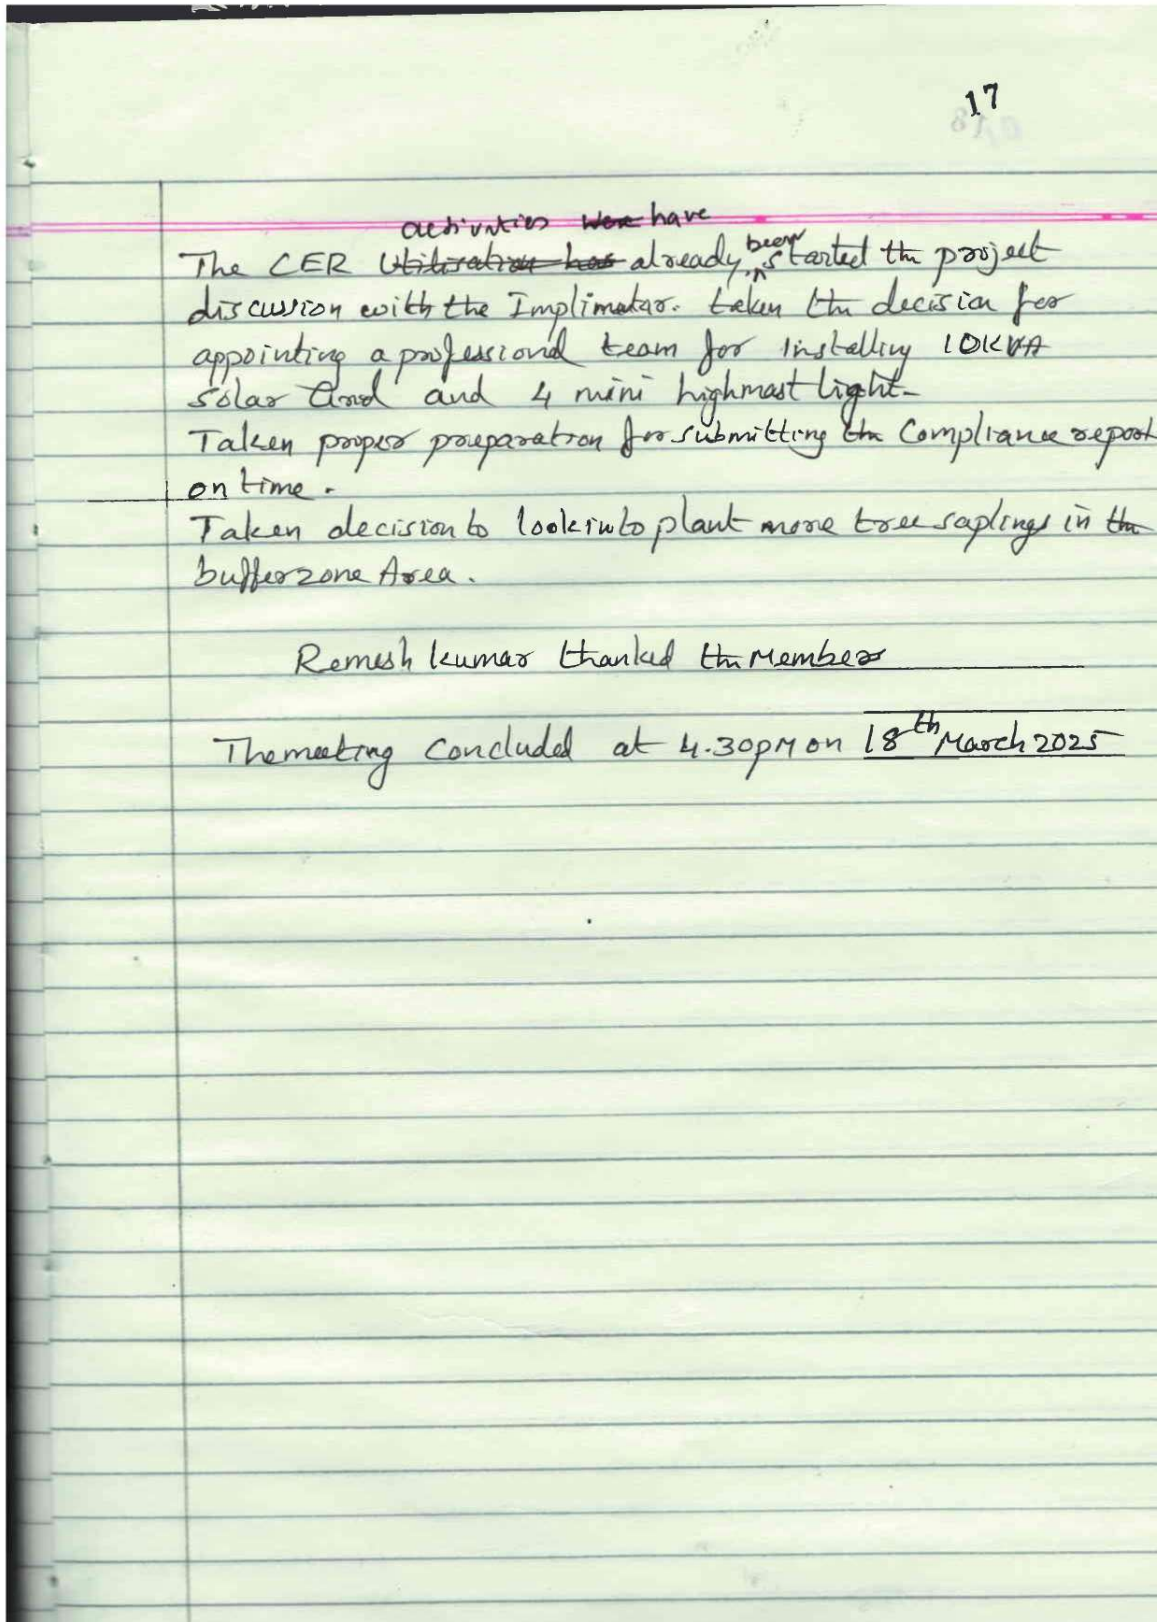 17
activities were have
The CER Utilisation has already been started the project
discussion with the Implimatar. taken the decision for
appointing a professional team for installing 10KVA
solar and and 4 mini highmast light-
Taken proper preparation for submitting the Compliance report
on time.
Taken decision to look into plant more tree saplings in the
bufferzone Area.
Remesh kumar thanked the Member
The meeting concluded at 4.30pm on 18th March 2025